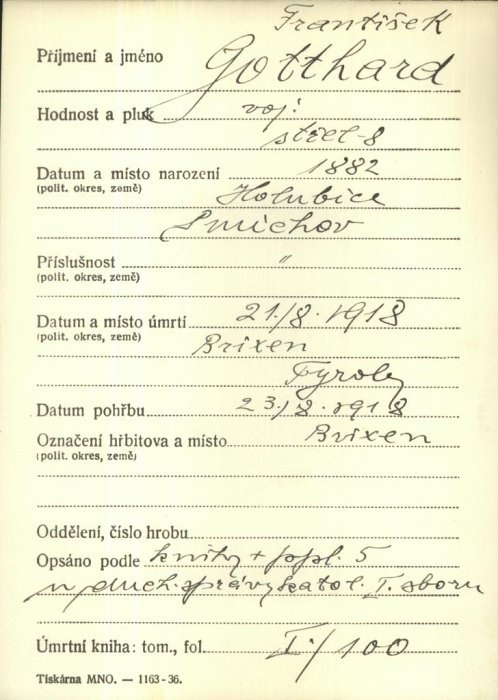 František
Příjmení a jméno Gotthard
Hodnost a pluk voj.
střel-8
Datum a místo narození 1882
(polit. okres, země) Holubice
Smichov
Příslušnost "
(polit. okres, země)
Datum a místo úmrtí 21./8. 1918
(polit. okres, země) Brixen
Tyroly
Datum pohřbu 23./8. 1918
Označení hřbitova a místo Brixen
(polit. okres, země)
Oddělení, číslo hrobu
Opsáno podle knihy + popl. 5
duch. správy katol. I. sboru
Úmrtní kniha: tom., fol. I./100
Tiskárna MNO. — 1163-36.